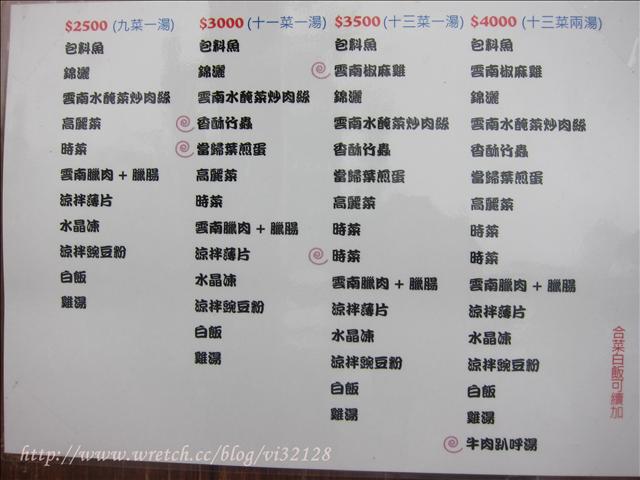 $2500 (九菜一湯)
包料魚
錦灑
雲南水醃菜炒肉絲
高麗菜
時菜
雲南臘肉 + 臘腸
涼拌薄片
水晶凍
涼拌豌豆粉
白飯
雞湯
$3000 (十一菜一湯)
包料魚
錦灑
雲南水醃菜炒肉絲
香酥竹蟲
當歸葉煎蛋
高麗菜
時菜
雲南臘肉 + 臘腸
涼拌薄片
水晶凍
涼拌豌豆粉
白飯
雞湯
$3500 (十三菜一湯)
包料魚
雲南椒麻雞
錦灑
雲南水醃菜炒肉絲
香酥竹蟲
當歸葉煎蛋
高麗菜
時菜
時菜
雲南臘肉 + 臘腸
涼拌薄片
水晶凍
涼拌豌豆粉
白飯
雞湯
$4000 (十三菜兩湯)
包料魚
雲南椒麻雞
錦灑
雲南水醃菜炒肉絲
香酥竹蟲
當歸葉煎蛋
高麗菜
時菜
時菜
雲南臘肉 + 臘腸
涼拌薄片
水晶凍
涼拌豌豆粉
白飯
雞湯
牛肉趴呼湯
合菜白飯可續加
http://www.wretch.cc/blog/vi32128